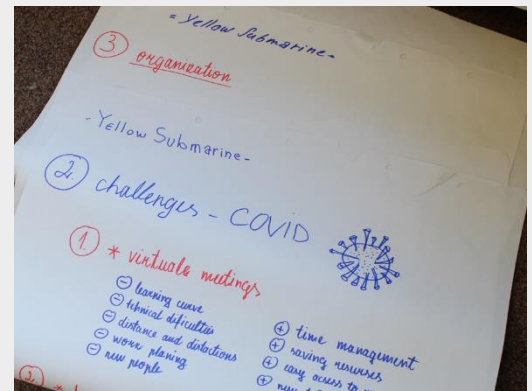 - Yellow Submarine -
③ organization
- Yellow Submarine -
② challenges - COVID
① * virtuals meetings
⊖ learning curve
⊖ tehnical dificulties
⊖ distance and distactions
⊖ work planing
⊖ new people
⊕ time management
⊕ saving resurses
⊕ easy access to
⊕
②. *